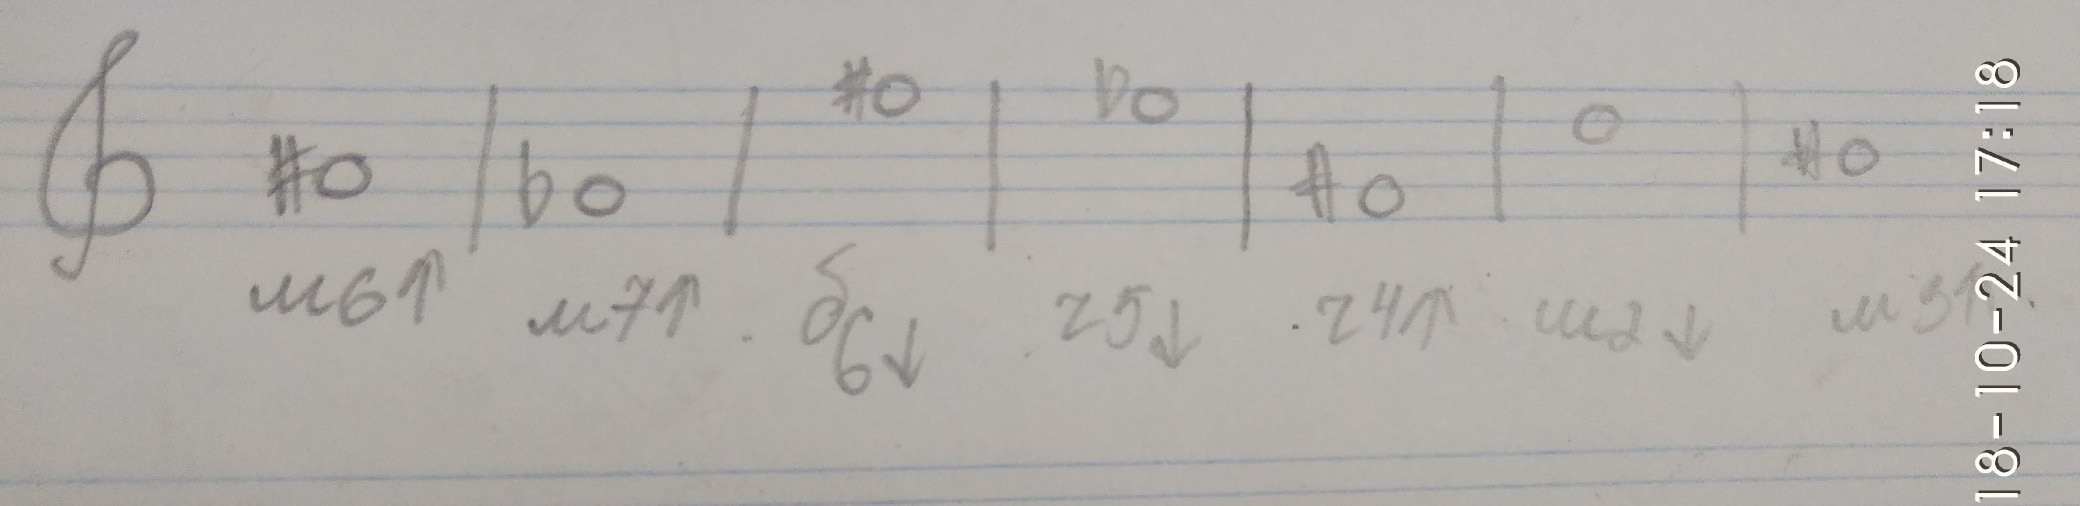 м6↑ м7↑. б6↓ . ч5↓ . ч4↑ . м2↓ м3↑.
18-10-24 17:18